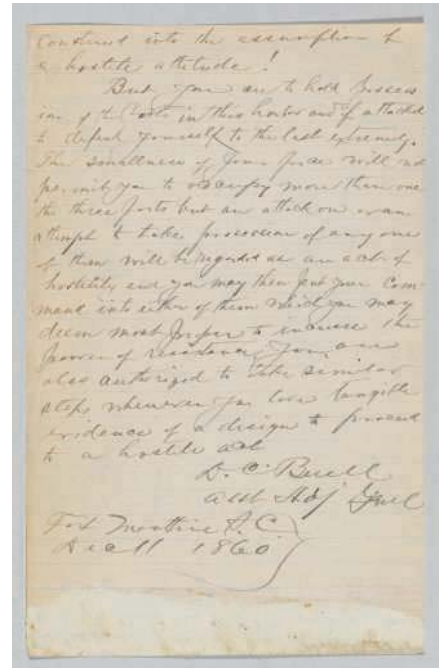 construed into the assumption of
a hostile attitude!
But you are to hold possess
ion of the Forts in this harbor and if attacked
to defend yourself to the last extremity.
The smallness of your force will not
permit you to occupy more than one
the three forts but an attack on or an
attempt to take possession of any one
of them will be regarded as an act of
hostility and you may then put your Com-
mand into either of them which you may
deem most proper to increase the
power of resistance. You are
also authorized to take similar
steps whenever you have tangible
evidence of a design to proceed
to a hostile act
D. C. Buell
Asst Adj Genl
Fort Moultrie S. C.
Dec 11 1860